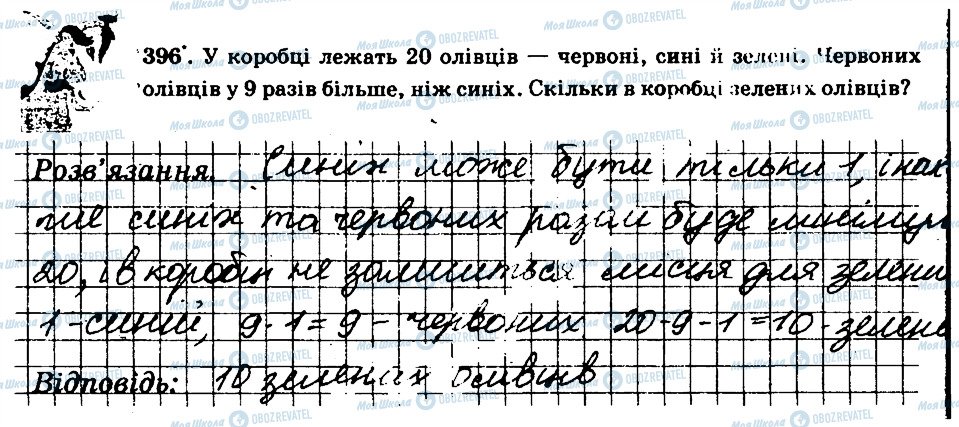 396*. У коробці лежать 20 олівців — червоні, сині й зелені. Червоних
олівців у 9 разів більше, ніж синіх. Скільки в коробці зелених олівців?
Розв'язання. Синіх може бути тільки 1, інак
ше синіх та червоних разом буде мінімум
20, і в коробці не залишиться місця для зелени
1 - синій, 9·1=9 - червоних. 20-9-1=10 - зелени
Відповідь: 10 зелених олівців
Моя Школа OBOZREVATEL